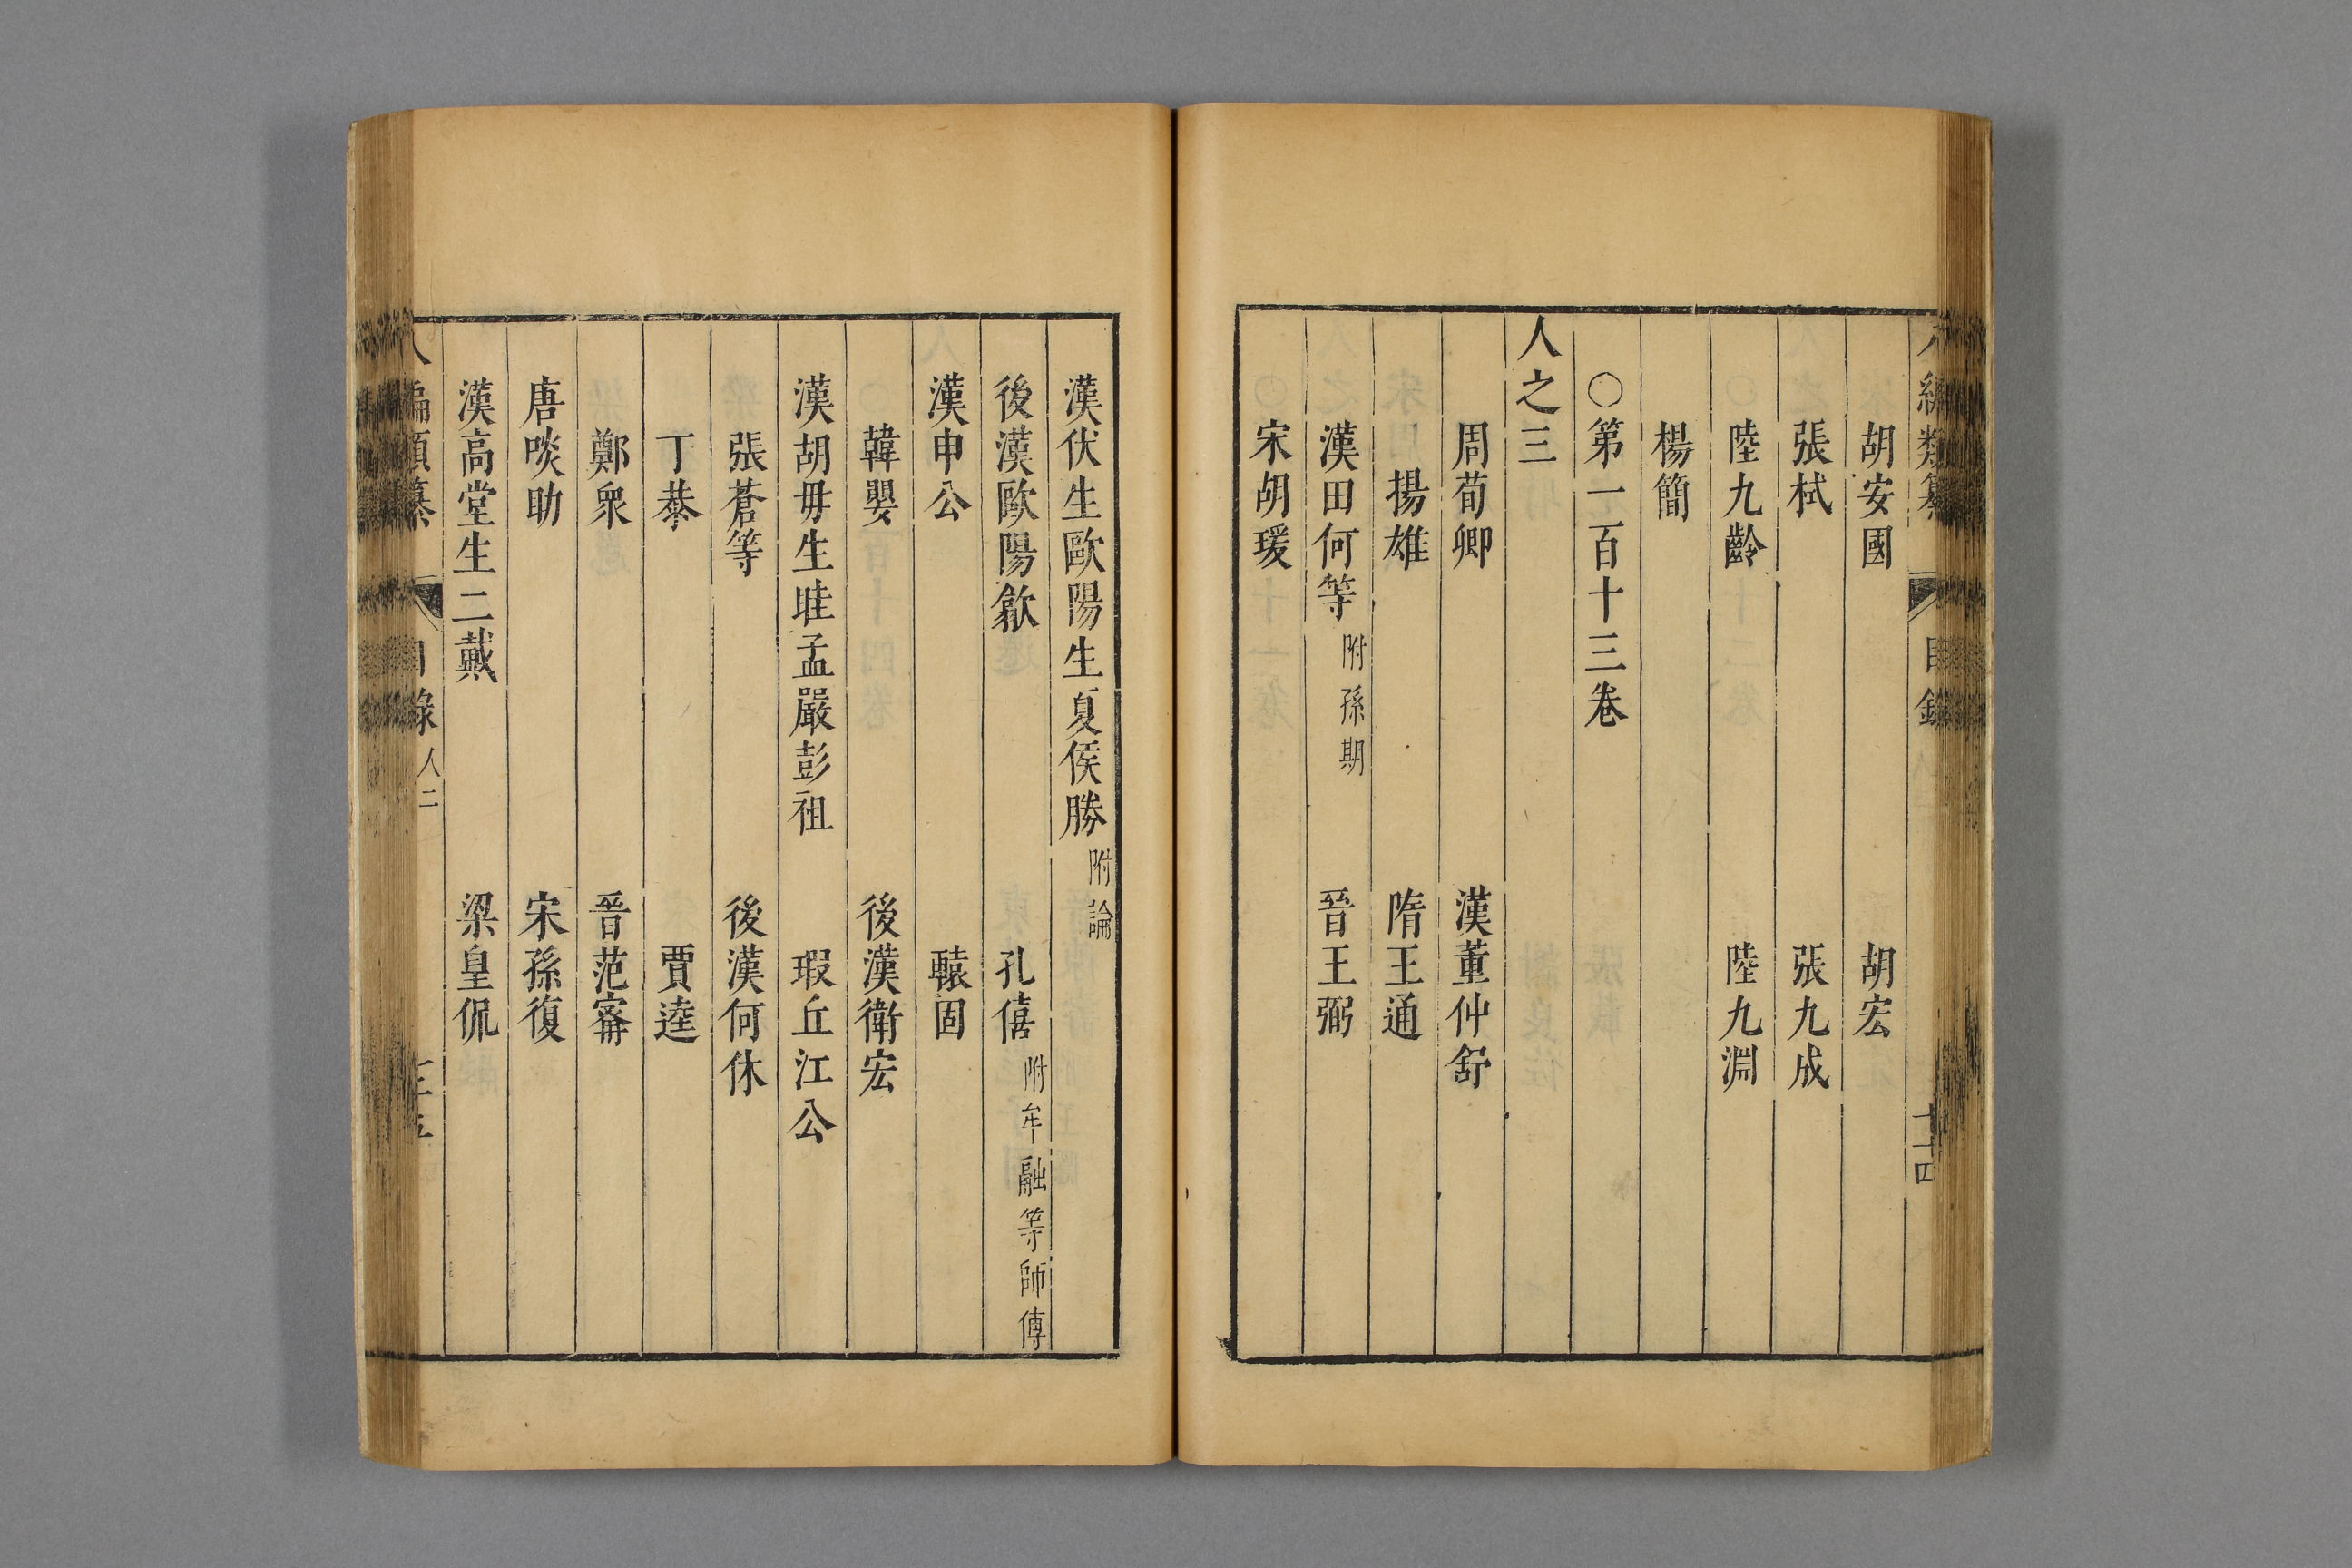 胡安國 胡宏
張栻 張九成
陸九齡 陸九淵
楊簡
○第一百十三卷
人之三
周荀卿 漢董仲舒
揚雄 隋王通
漢田何等附孫期 晉王弼
宋胡瑗
漢伏生歐陽生夏侯勝附論
後漢歐陽歙 孔僖附牟融等師傳
漢申公 轅固
韓嬰 後漢衛宏
漢胡毋生眭孟嚴彭祖 瑕丘江公
張蒼等 後漢何休
丁𬜬 賈逵
鄭眾 晉范甯
唐啖助 宋孫復
漢高堂生二戴 梁皇侃
目錄 人二